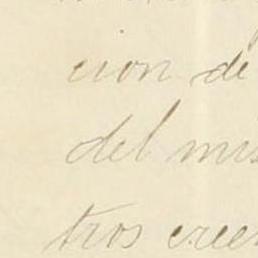 cion de
del mis
tros creen